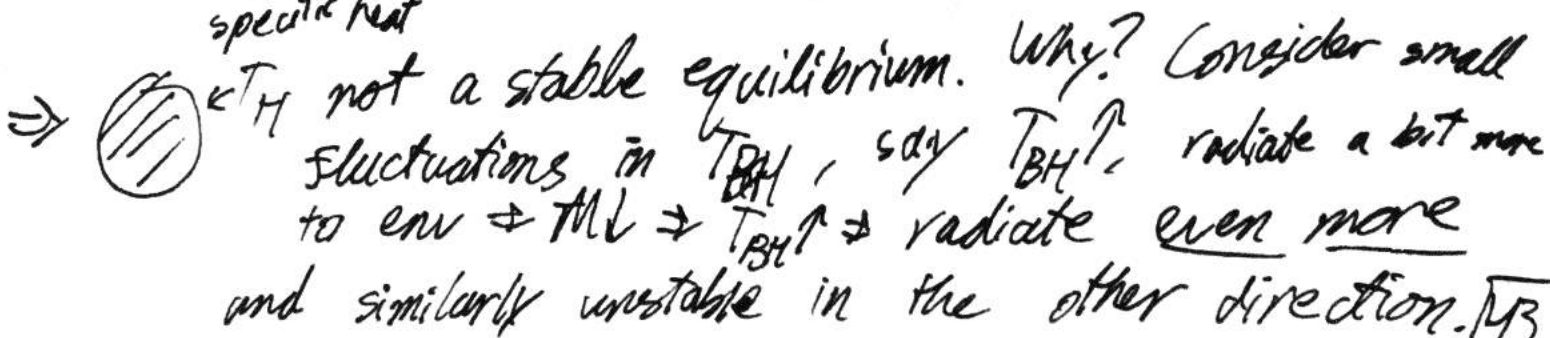 specific heat
⇒ ← T_H not a stable equilibrium. Why? Consider small
fluctuations in T_BH, say T_BH↑, radiate a bit more
to env ⇒ M↓ ⇒ T_BH↑ ⇒ radiate even more
and similarly unstable in the other direction.